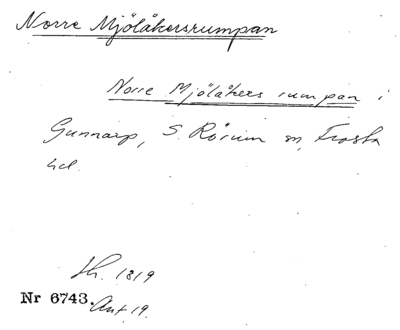 Norre Mjölåkersrumpan
Norre Mjölåkers rumpan i
Gunnarp, S. Rörum sn, Frosta
hd.
Sk. 1819
Nr 6743. Akt 19.